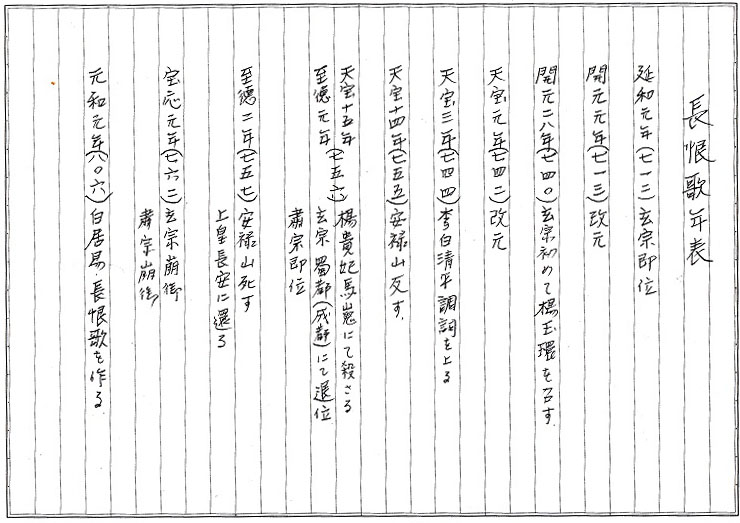 長恨歌年表
延和元年(七一二)玄宗即位
開元元年(七一三)改元
開元二八年(七四〇)玄宗初めて楊玉環を召す.
天宝元年(七四二)改元
天宝三年(七四四)李白清平調詞を上る
天宝十四年(七五五)安禄山反す.
天宝十五年
至徳元年(七五六)楊貴妃馬嵬にて殺さる
玄宗蜀都(成都)にて退位
肅宗即位
至徳二年(七五七)安禄山死す
上皇長安に還る
宝応元年(七六二)玄宗崩御
肅宗崩御
元和元年(八〇六)白居易長恨歌を作る.